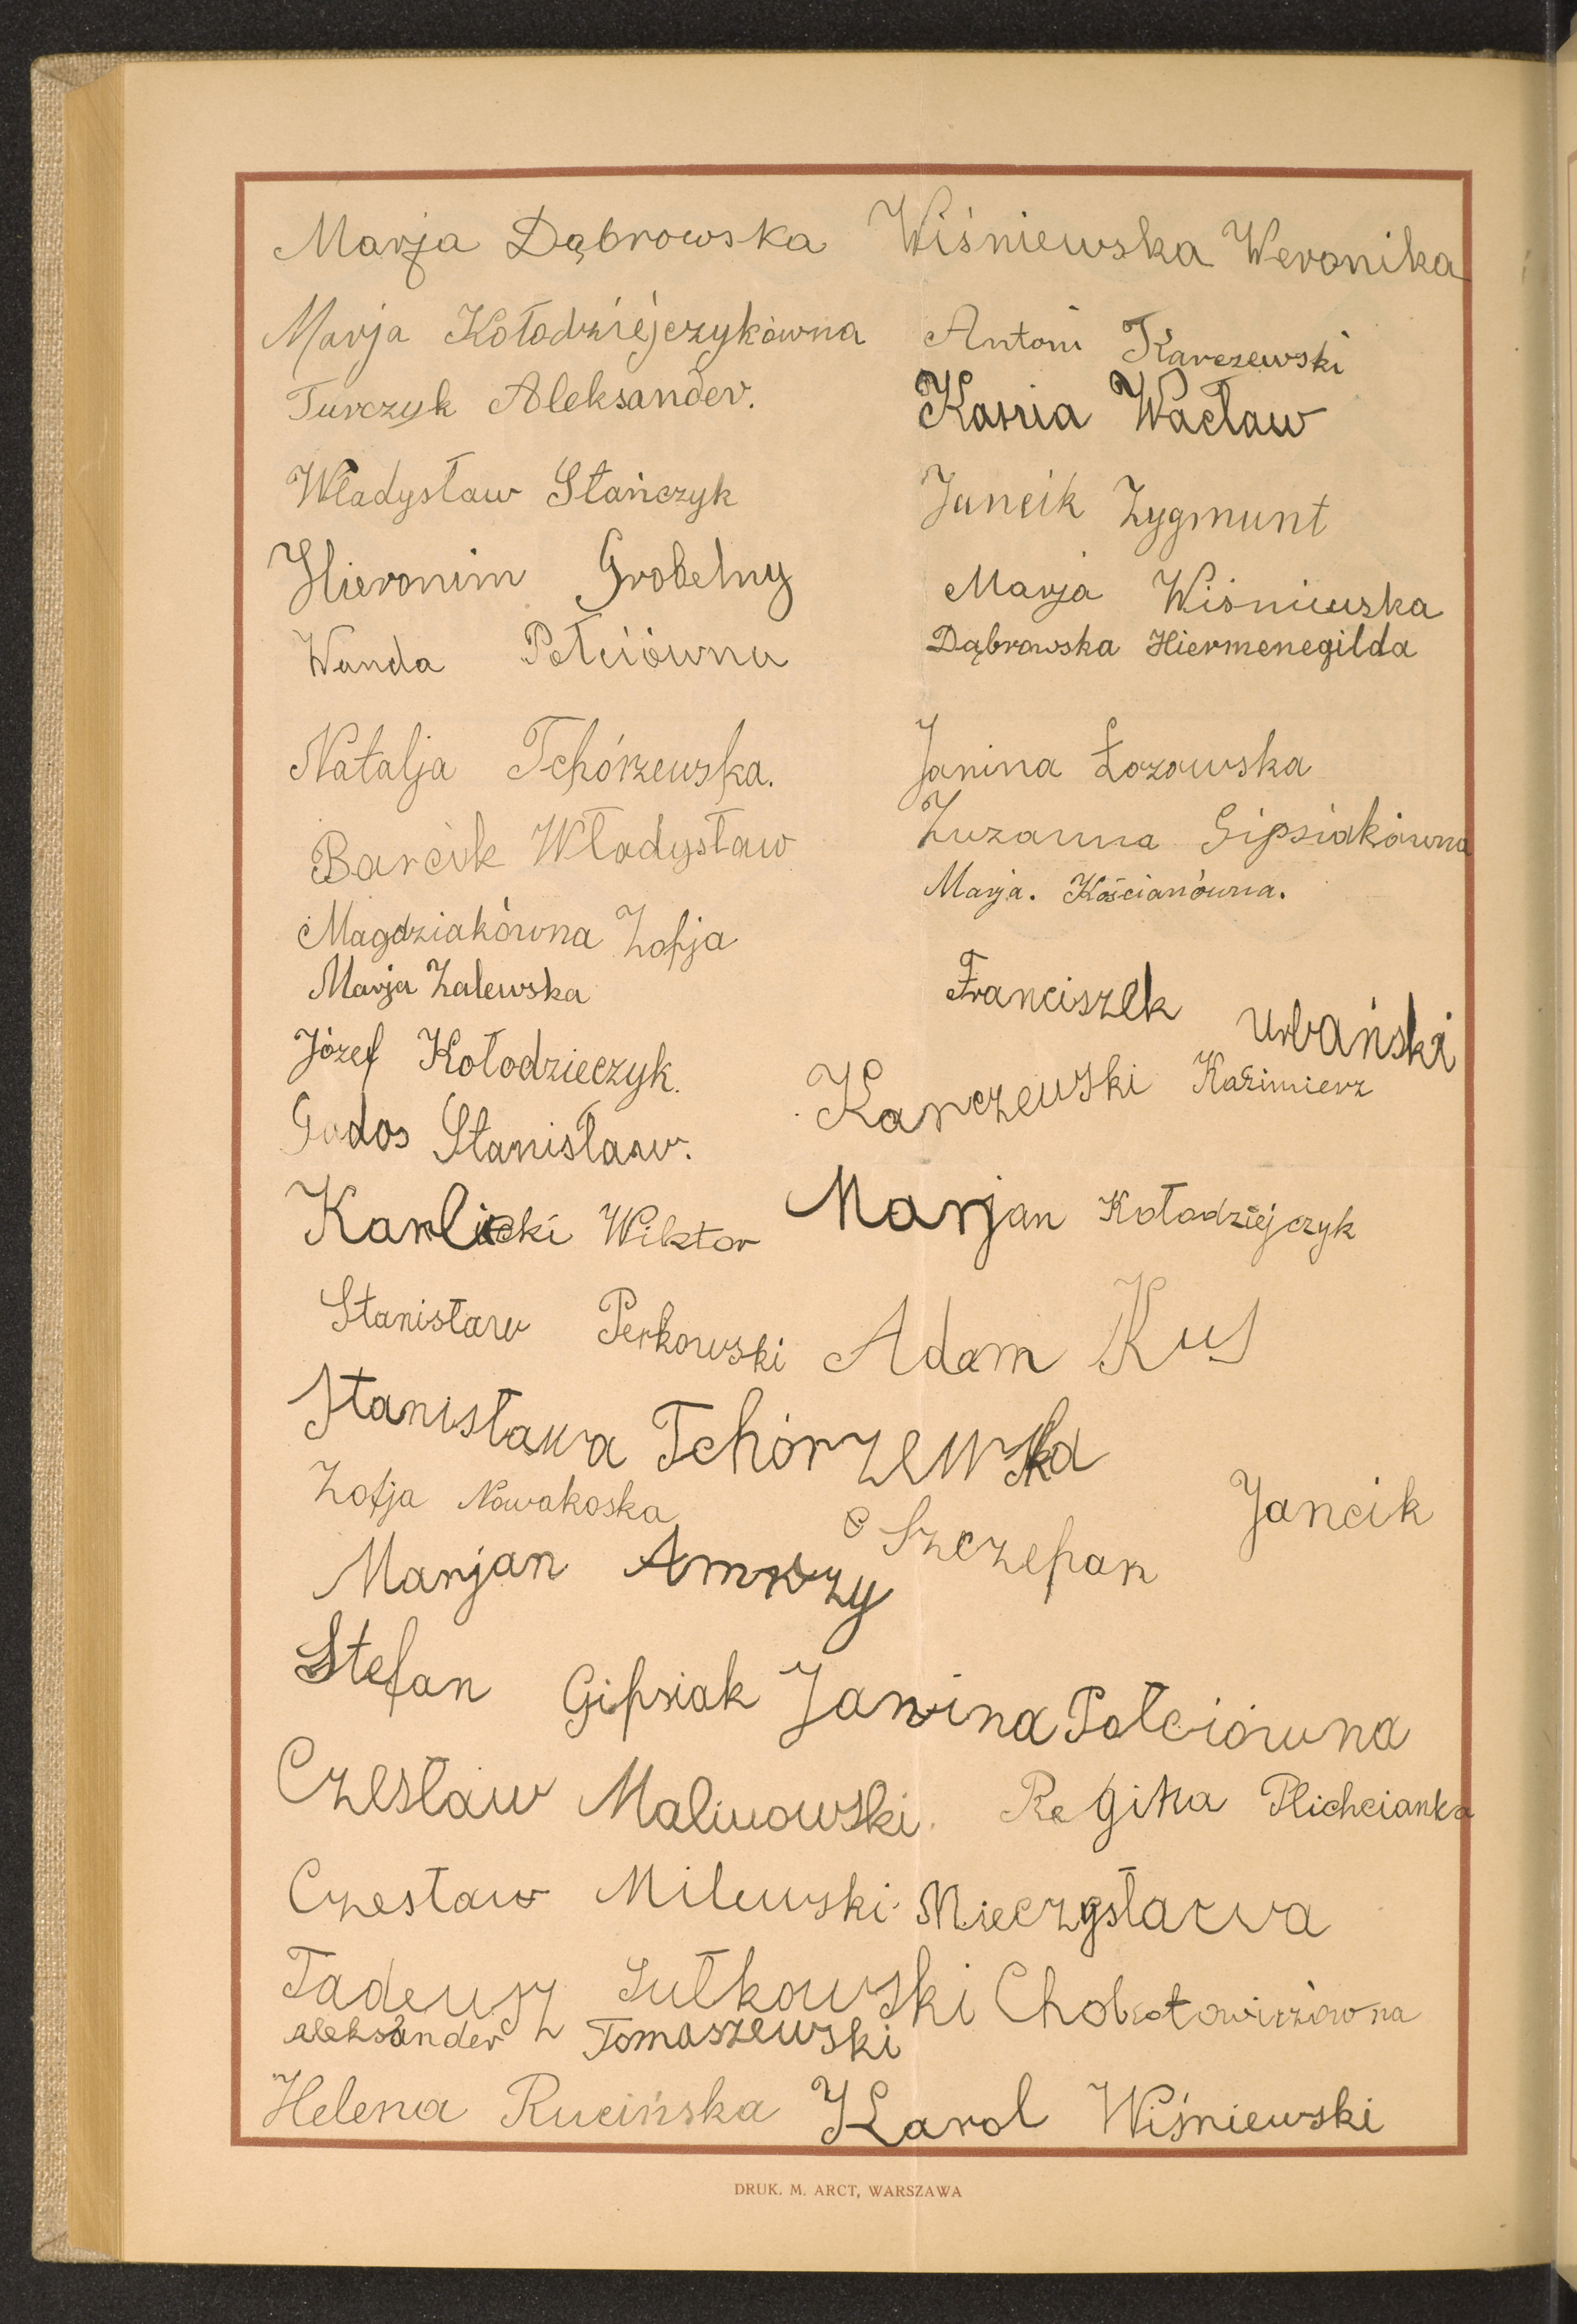 Marja Dąbrowska Wiśniewska Weronika
Marja Kołodziéjczykówna Antoni Karczewski
Turczyk Aleksander. Kania Wacław
Władysław Stańczyk Jancik Zygmunt
Hieronim Grobelny Marja Wiśniewska
Wanda Połciówna Dąbrowska Hiermenegilda
Natalja Tchórzewska. Janina Łozowska
Barcik Władysław Zuzanna Gipsiakówna
Magdziakówna Zofja Marja. Kościanówna.
Marja Zalewska Franciszek Urbański
Józef Kołodzieczyk. Karczewski Kazimierz
Godos Stanisław.
Karlicki Wiktor Marjan Kołodziejczyk
Stanisław Perkowski Adam Kus
Stanisława Tchórzewska
Zofja Nowakoska Szczepan Jancik
Marjan
Stefan Gipsiak Janina Połciówna
Czesław Malinowski. Regina Plichcianka
Czesław Milewski Mieczysława
Tadeusz Sułkowski Chobotowiczówna
Aleksander Tomaszewski
Helena Rucińska Karol Wiśniewski
DRUK. M. ARCT, WARSZAWA